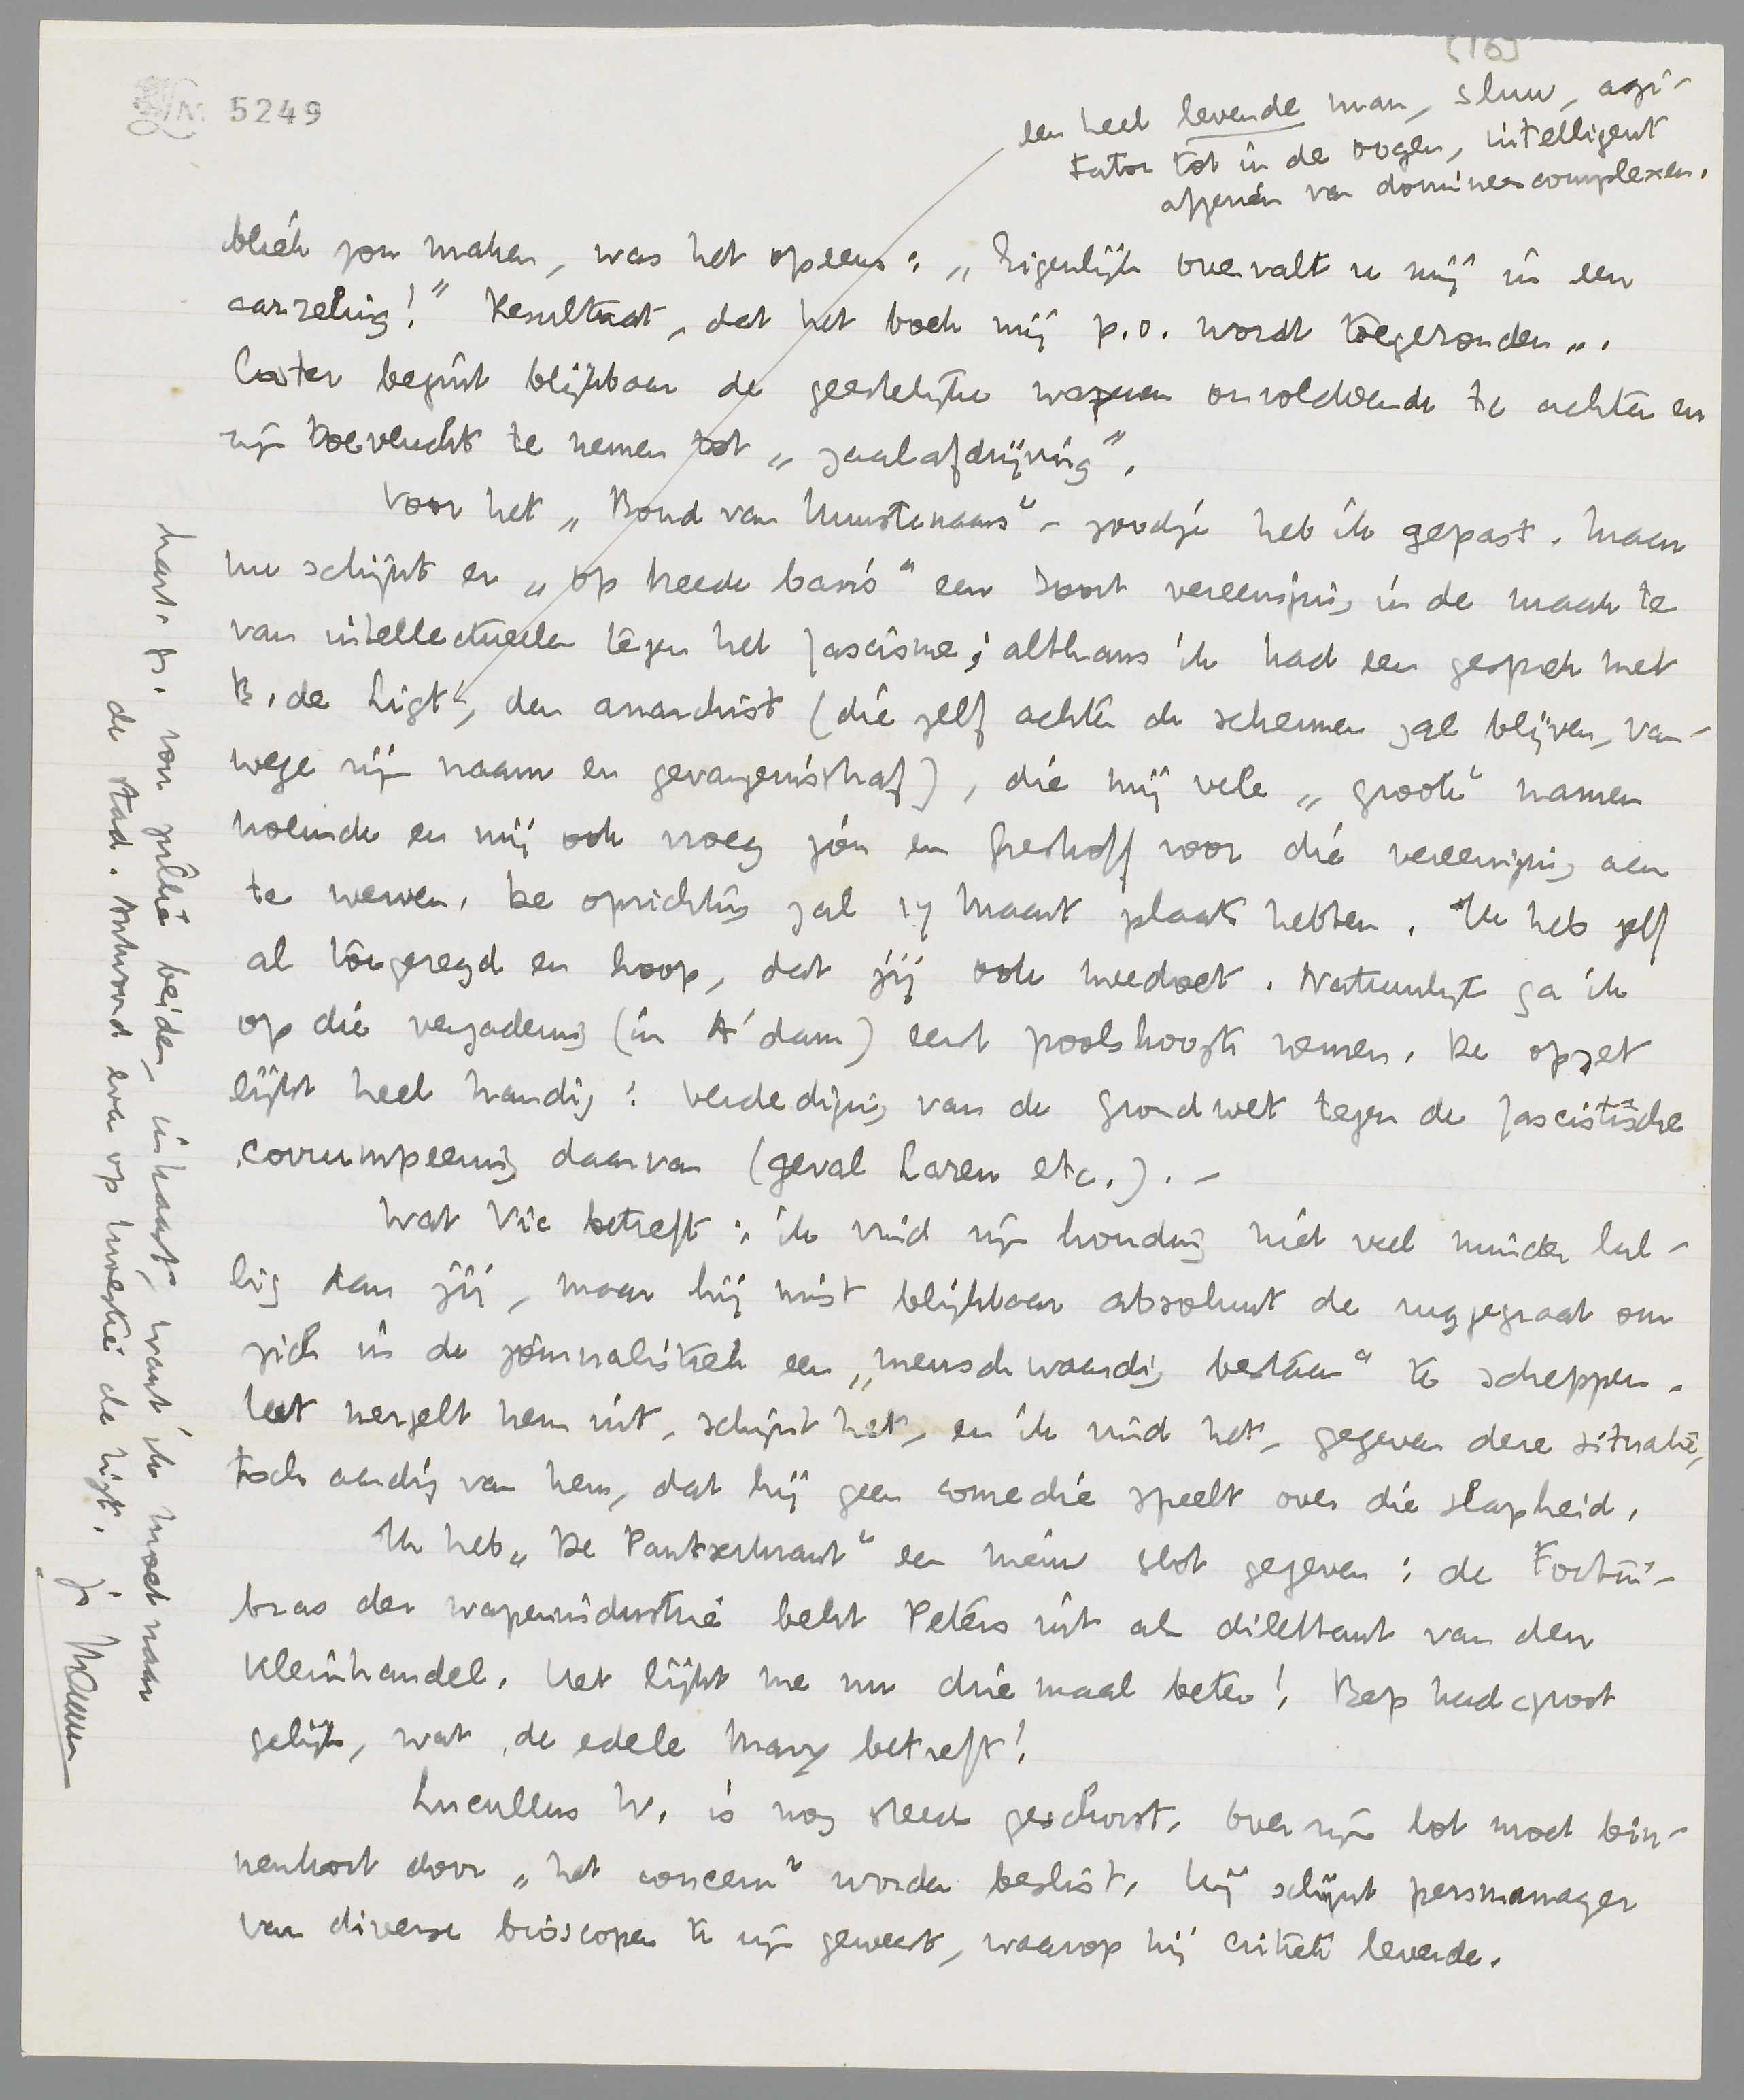 [16]
5249
een heel levende man, sluw, agi-
tator tot in de oogen, intelligent
afgezien van domineescomplexen.
bliek zou maken, was het opeens: „Eigenlijk overvalt u mij in een
aarzeling!" Resultaat, dat het boek mij p.o. wordt toegezonden..
Coster begint blijkbaar de geestelijke wapenen onvoldoende te achten en
zijn toevlucht te nemen tot „zaalafdrijving".
Voor het „Bond van Kunstenaars"-zoodje heb ik gepast. Maar
nu schijnt er „op breede basis" een soort vereeniging in de maak te
van intellectueelen tegen het fascisme; althans ik had een gesprek met
B. de Ligt, den anarchist (die zelf achter de schermen zal blijven, van-
wege zijn naam en gevangenisstraf), die mij vele „groote" namen
noemde en mij ook vroeg jou en Greshoff voor die vereeniging aan
te werven. De oprichting zal 17 Maart plaats hebben. Ik heb zelf
al toegezegd en hoop, dat jij ook meedoet. Natuurlijk ga ik
op die vergadering (in A'dam) eerst poolshoogte nemen. De opzet
lijkt heel handig: verdediging van de grondwet tegen de fascistische
corrumpeering daarvan (geval Laren etc.). -
Wat Vic betreft: ik vind zijn houding niet veel minder lul-
lig dan jij, maar hij mist blijkbaar absoluut de ruggegraat om
zich in de journalistiek een „menschwaardig bestaan" te scheppen.
Het mergelt hem uit, schijnt het, en ik vind het, gegeven deze situatie,
toch aardig van hem, dat hij geen comedie speelt over die slapheid.
Ik heb „De Pantserkrant" een nieuw slot gegeven: de Fortin-
bras der wapenindustrie belt Peters uit als dilettant van den
kleinhandel. Het lijkt me nu driemaal beter! Bep had groot
gelijk, wat de edele Mary betreft!
Lucullus W. is nog steeds geschorst. Over zijn lot moet bin-
nenkort door „het concern" worden beslist. Hij schijnt persmanager
van diverse bioscopen te zijn geweest, waarop hij critiek leverde.
hart. gr. voor jullie beiden, in haast, want ik moet naar
de stad. Antwoord even op kwestie de Ligt.
je Menno